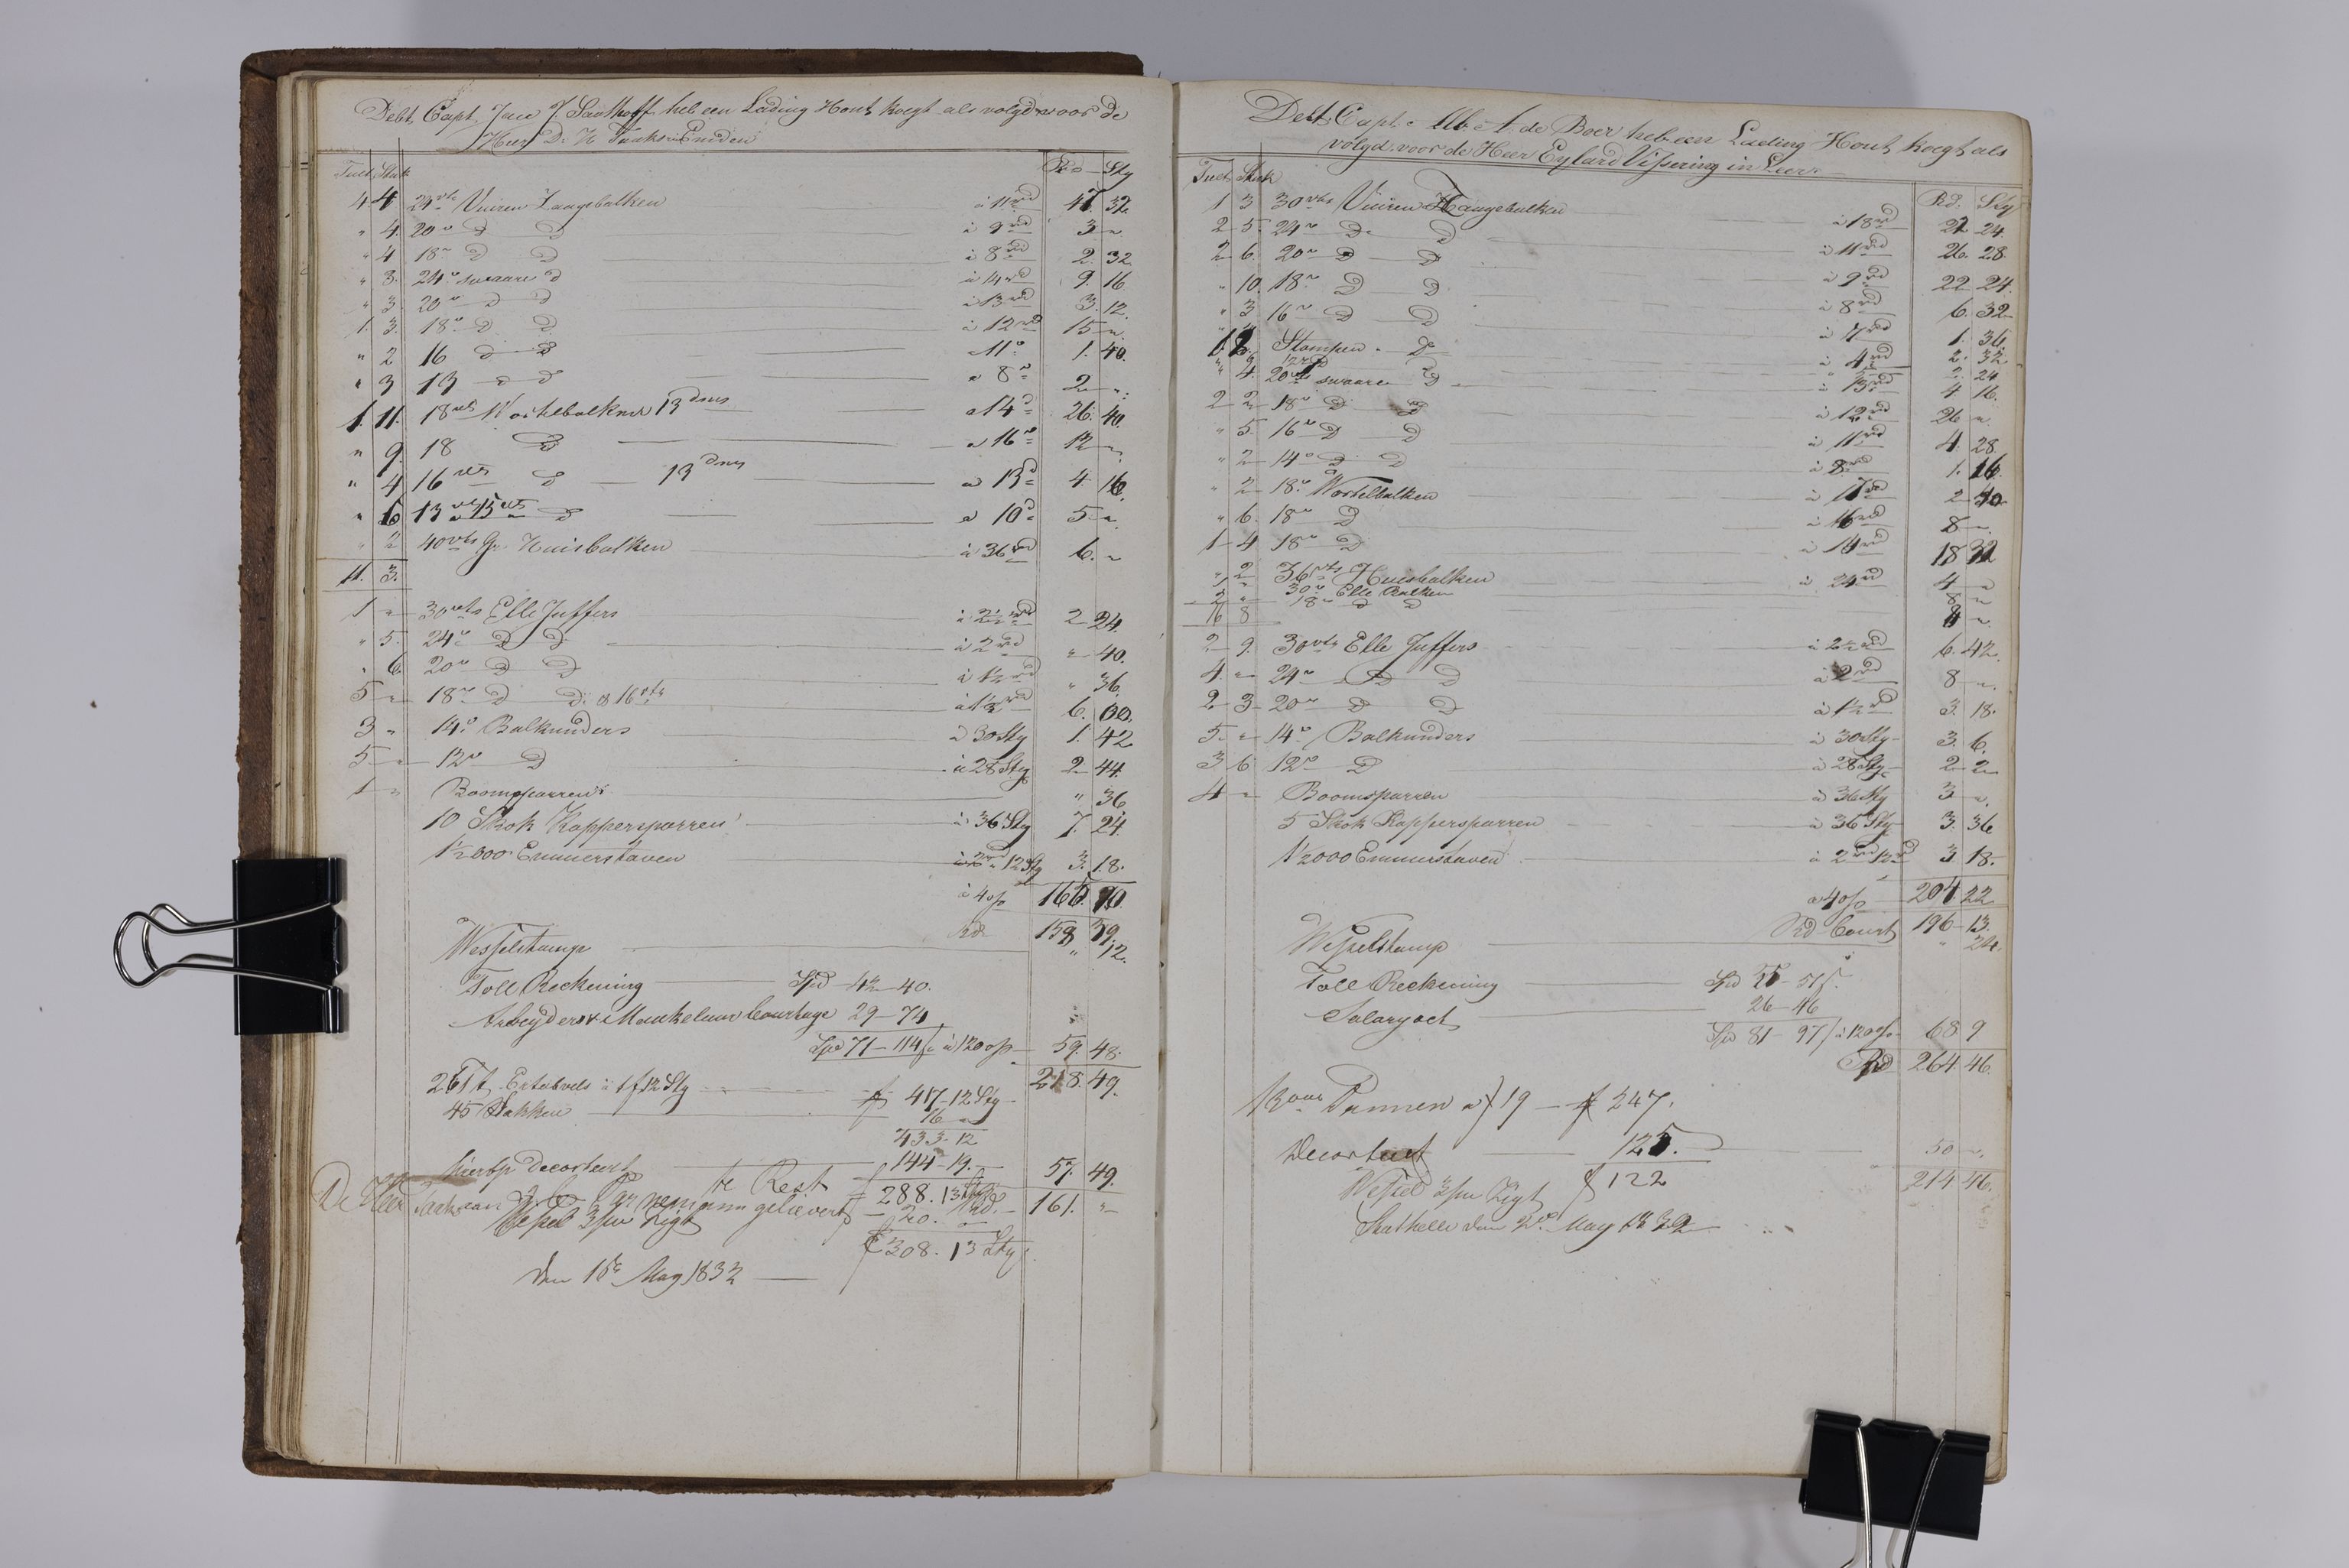 Debt Capt. J. Saathoff heb een Lading Hout kogt als volgd voor de
Heer D: H Taaks in Emden
Tult Stuk Rd Sty
4 4 24vts Vuiren Zaagebalken à 11rd 47. 32.
" 4 20" D D à 9rd 3 "
" 4 18" D D à 8rd 2. 32
" 3. 24" swaare d à 14rd 9. 16
" 3. 20" D D à 13rd 3. 12.
1. 3. 18" D D à 12rd 15 "
" 2 16 d D à 11" 1. 40.
" 3 13 d d a 8" 2 "
1. 11. 18vts Wortelbalken 13dms a 14d 26. 40.
" 9. 18 D a 16" 12 "
" 4 16vts d 13dms a 13d 4 16.
" 6 13 a 15vts d a 10d 5 "
" 2 40vts Gr. Huisbalken à 36rd 6. "
11. 3.
1 " 30vts Elle Juffers à 2½rd 2 24.
" 5. 24" D D à 2rd " 40.
" 6. 20" D D à 1½rd " 36.
5 " 18" D D: & 16vts 6.
3 " 14" Balkunders à 30 Sty 1. 42
5 " 12" D à 28 Sty 2 44.
1 " Boomsparren " 36
10 Skok Kappersparren à 36 Sty 7. 24
1½000 Emmerstaven à 2rd 12 Sty 3. 18.
à 4 o/o
Rd 158 39
Wesselstamp " 12.
Toll Reckening Spd 42 40.
Arbeyders & Maukelaar Courtage 29 - 74
Spd 71 - 114 à 120 o/o 59. 48.
218. 49.
Ertabvels à 1f 12 Sty f 417 - 12 Sty
45 Sakken 16 "
433 - 12
hierop Decorteert 144 - 19. 57. 49.
te Rest f 288. 13 Sty Rd. 161. "
De Heer gelievert 20. "
Wessel 3/m Zigt f 308. 13 Sty
den 18 May 1832
Debt Capt. Alb. J. de Boer heb een Lading Hout kogt als
volgd voor de Heer Eylard Vissering in Leer
Tult Stuk Rd. Sty
1 3 30vts Vuiren Zaagebalken à 18rd 22 24.
2 5. 24" D D à 11rd 26. 28.
2 6. 20" D D à 9rd 22 24.
" 10. 18" D D à 8rd 6. 32
" 3 16" D D à 7rd 1. 36
Stompen D à 4rd 2. 32.
" 4. 20vts swaare D à 13rd 4 16.
2 2 18" D D à 12rd 26 "
" 5. 16" D D à 11rd 4. 28.
" 2 14" D D à 8rd 1. 16.
" 2 18" Wortelbalken à 17rd 2 40
" 6. 18" D à 16rd 8 "
1 4 18" D à 14rd 18 32
" 2 36vts Huisbalken à 24rd 4 "
" 30" Elle Balken 8 "
2 " 18" D D 4 "
16 8
2 9. 30vts Elle Juffers à 2½rd 6. 42.
4. " 24" D D à 2rd 8 "
2 3 20" D D à 1½rd 3. 18.
5. " 14" Balkunders à 30 Sty 3. 6.
3 6 12" D à 28 Sty 2 2
4 " Boomsparren à 36 Sty 3 "
5 Skok Kappersparren à 36 Sty 3. 36
1½000 Emmerstaven à 2rd 12 3. 18.
a 4 o/o 204. 22
Rd Court 196 - 13.
Wesselstamp " 24.
Toll Reckening Spd 55 - 51
Salary oct 26 - 46
Spd 81 - 97 à 120 o/o 68 9
Rd 264 46.
Pannen a f 19 f 247.
Decorteert 125. 50 "
f 122 214 46.
Wessel 3/m Zigt
Skathelle den 2 May 1832